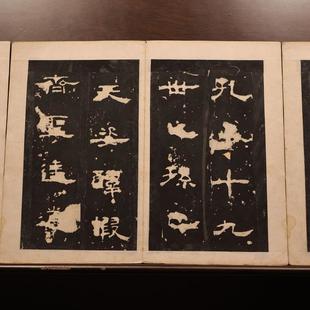 孔子十九
世之孫也
天姿醇嘏
齊聖達道